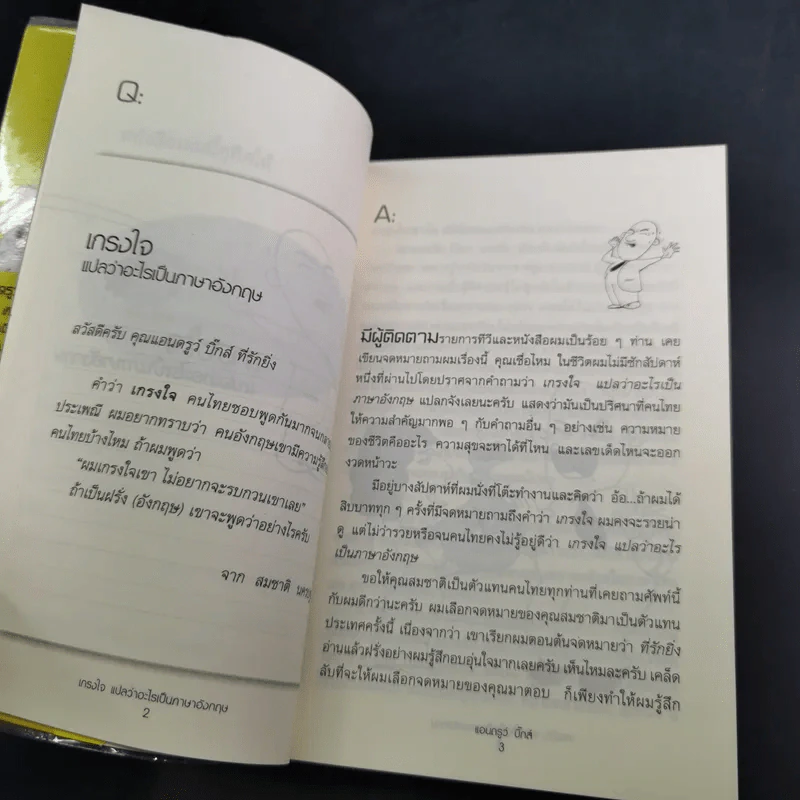 Q:
เกรงใจ
แปลว่าอะไรเป็นภาษาอังกฤษ
สวัสดีครับ คุณแอนดรูว์ บิ๊กส์ ที่รักยิ่ง
คำว่า เกรงใจ คนไทยชอบพูดกันมากจน
ประเพณี ผมอยากทราบว่า คนอังกฤษเขามีความรู้สึก
คนไทยบ้างไหม ถ้าผมพูดว่า
"ผมเกรงใจเขา ไม่อยากจะรบกวนเขาเลย"
ถ้าเป็นฝรั่ง (อังกฤษ) เขาจะพูดว่าอย่างไรครับ
จาก สมชาติ
เกรงใจ แปลว่าอะไรเป็นภาษาอังกฤษ
2
A:
มีผู้ติดตามรายการทีวีและหนังสือผมเป็นร้อย ๆ ท่าน เคย
เขียนจดหมายถามผมเรื่องนี้ คุณเชื่อไหม ในชีวิตผมไม่มีซักสัปดาห์
หนึ่งที่ผ่านไปโดยปราศจากคำถามว่า เกรงใจ แปลว่าอะไรเป็น
ภาษาอังกฤษ แปลกจังเลยนะครับ แสดงว่ามันเป็นปริศนาที่คนไทย
ให้ความสำคัญมากพอ ๆ กับคำถามอื่น ๆ อย่างเช่น ความหมาย
ของชีวิตคืออะไร ความสุขจะหาได้ที่ไหน และเลขเด็ดไหนจะออก
งวดหน้าวะ
มีอยู่บางสัปดาห์ที่ผมนั่งที่โต๊ะทำงานและคิดว่า อ้อ...ถ้าผมได้
สิบบาททุก ๆ ครั้งที่มีจดหมายถามถึงคำว่า เกรงใจ ผมคงจะรวยน่า
ดู แต่ไม่ว่ารวยหรือจนคนไทยคงไม่รู้อยู่ดีว่า เกรงใจ แปลว่าอะไร
เป็นภาษาอังกฤษ
ขอให้คุณสมชาติเป็นตัวแทนคนไทยทุกท่านที่เคยถามศัพท์นี้
กับผมดีกว่านะครับ ผมเลือกจดหมายของคุณสมชาติมาเป็นตัวแทน
ประเทศครั้งนี้ เนื่องจากว่า เขาเรียกผมตอนต้นจดหมายว่า ที่รักยิ่ง
อ่านแล้วฝรั่งอย่างผมรู้สึกอบอุ่นใจมากเลยครับ เห็นไหมละครับ เคล็ด
ลับที่จะให้ผมเลือกจดหมายของคุณมาตอบ ก็เพียงทำให้ผมรู้สึก
แอนดรูว์ บิ๊กส์
3